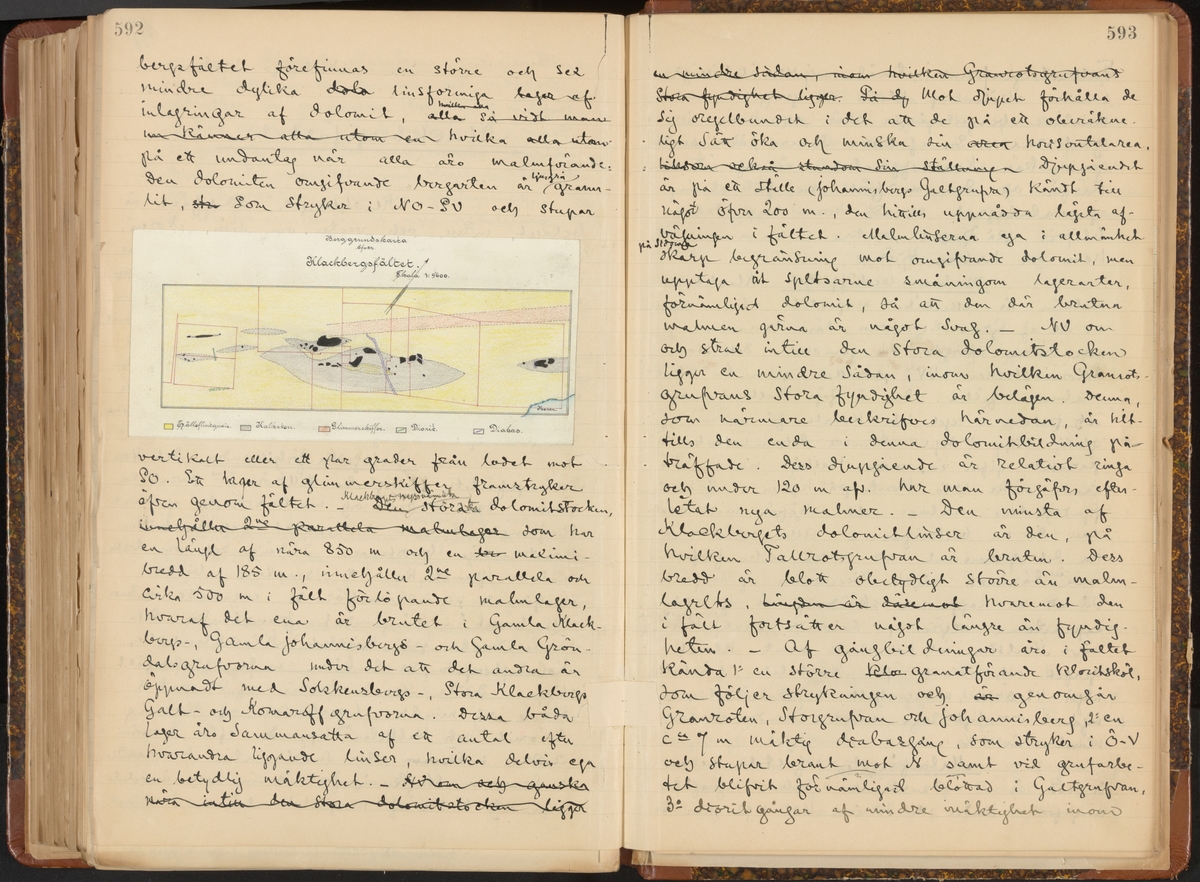 592
bergsfältet förefinnas en större och sex
mindre dylika dolo linsformiga lager af
inlagringar af dolomit, alla så vidt man
nu känner alla utom en hvilka alla utom
på ett undantag när alla äro malmförande.
Den dolomiten omgifvande bergarten är ljusgrå granu-
lit, som stryker i NO-SV och stupar
Berggrundskarta
öfver
Klackbergsfältet.
Skala 1:9600.
Hälleflintgneis. Kalksten. Glimmerskiffer. Diorit. Diabas.
vertikalt eller ett par grader från lodet mot
SO. Ett lager af glimmerskiffer framstryker
äfven genom fältet. – Den största dolomitstocken,
innehåller 2ne parallela malmlager som har
en längd af nära 850 m och en maximi-
bredd af 185 m., innehåller 2ne parallela och
cirka 500 m i fält förlöpande malmlager,
hvaraf det ena är brutet i Gamla Klack-
bergs-, Gamla Johannisbergs- och Gamla Grön-
dalsgrufvorna under det att det andra är
öppnadt med Sokkensbergs-, Stora Klackbergs
Galt- och Komaroffgrufvorna. Dessa båda
lager äro sammansatta af ett antal efter
hvarandra liggande linser, hvilka delvis ega
en betydlig mäktighet. – NV om och ganska
nära intill den stora dolomitstocken ligger
593
en mindre sådan, inom hvilken Granrotsgrufvans
Stora fyndighet ligger. På dj Mot djupet förhålla de
sig oregelbundet i det att de på ett oberäkne-
ligt sätt öka och minska sin area horisontalarea,
liksom också stundom sin ställning Djupgåendet
är på ett ställe (Johannisbergs Galtgrufva) kändt till
något öfver 200 m., den hittills uppnådda lägsta af-
vägningen i fältet. Malmlinserna ega i allmänhet
på sidorna
skarp begränsning mot omgifvande dolomit, men
upptaga åt spetsarne småningom lagerarter,
förnämligast dolomit, så att den där brutna
malmen gärna är något svag. – NV om
och strax intill den stora dolomitstocken
ligger en mindre sådan, inom hvilken Granrots-
grufvans Stora fyndighet är belägen. Denna,
som närmare beskrifves härnedan, är hit-
tills den enda i denna dolomitbildning på-
träffade. Dess djupgående är relativt ringa
och under 120 m afv. har man förgäfves efter-
letat nya malmer. – Den minsta af
Klackbergets dolomitlinser är den, på
hvilken Tallrotsgrufvan är bruten. Dess
bredd är blott obetydligt större än malm-
lagrets, längden är däremot hvaremot den
i fält fortsätter något längre än fyndig-
heten. – Af gångbildningar äro i fältet
kända 1o en större klo granatförande kloritsköl,
som följer strykningen och är genomgår
Granroten, Storgrufvan och Johannisberg, 2o en
ca 7 m mäktig diabasgång, som stryker i Ö-V
och stupar brant mot N samt vid grufarbe-
tet blifvit förnämligast blottad i Galtgrufvan,
3o dioritgångar af mindre mäktighet inom